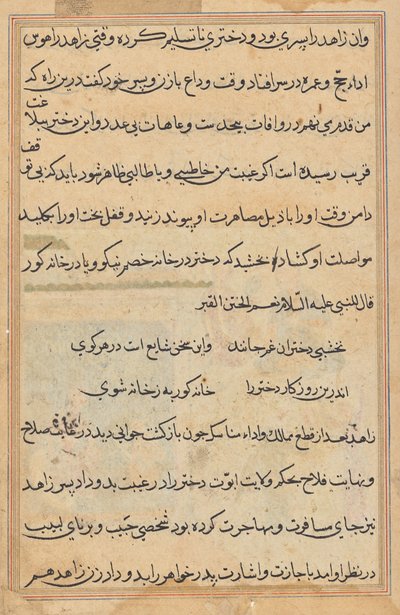 وان زاهد را پسری بود و دختری نا تسلیم کرده وقتی زاهد را هوس
اداء حج و عمره در سر افتاد وقت وداع با زن و پسر خود گفت درین راه که
من قدم می نهم در و آفات بیحدست و عاهات بی عدد و این دختر ببلاغت
قریب رسیده است اگر غیبت من خاطبی و یا طالبی ظاهر شود باید که بی توقف
دامن وقت او را باذیل مصاهرت او پیوند زنید و قفل بخت او را بکلید
مواصلت او کشاد بخشید که دختر در خانه خصم نیکو و یا در خانه کور
قال للنبی علیه السلام نعم الختن القبر
نخشبی دختران غم جانند واین سخن شایع است در هر کوی
اندرین روزکار دختر را خانه کور به ز خانه شوی
زاهد بعد از قطع ممالک و اداء مناسک چون باز کشت جوانی دید در غایت صلاح
و نهایت فلاح بحکم ولایت ابوت دختر را در غیبت بدو داد پسر زاهد
نیز جای مسافرت و مهاجرت کرده بود شخصی حبیب و برنای لبیب
در نظر او امد باجازت و اشارت پدر خواهر را بدو داد زن زاهد هم